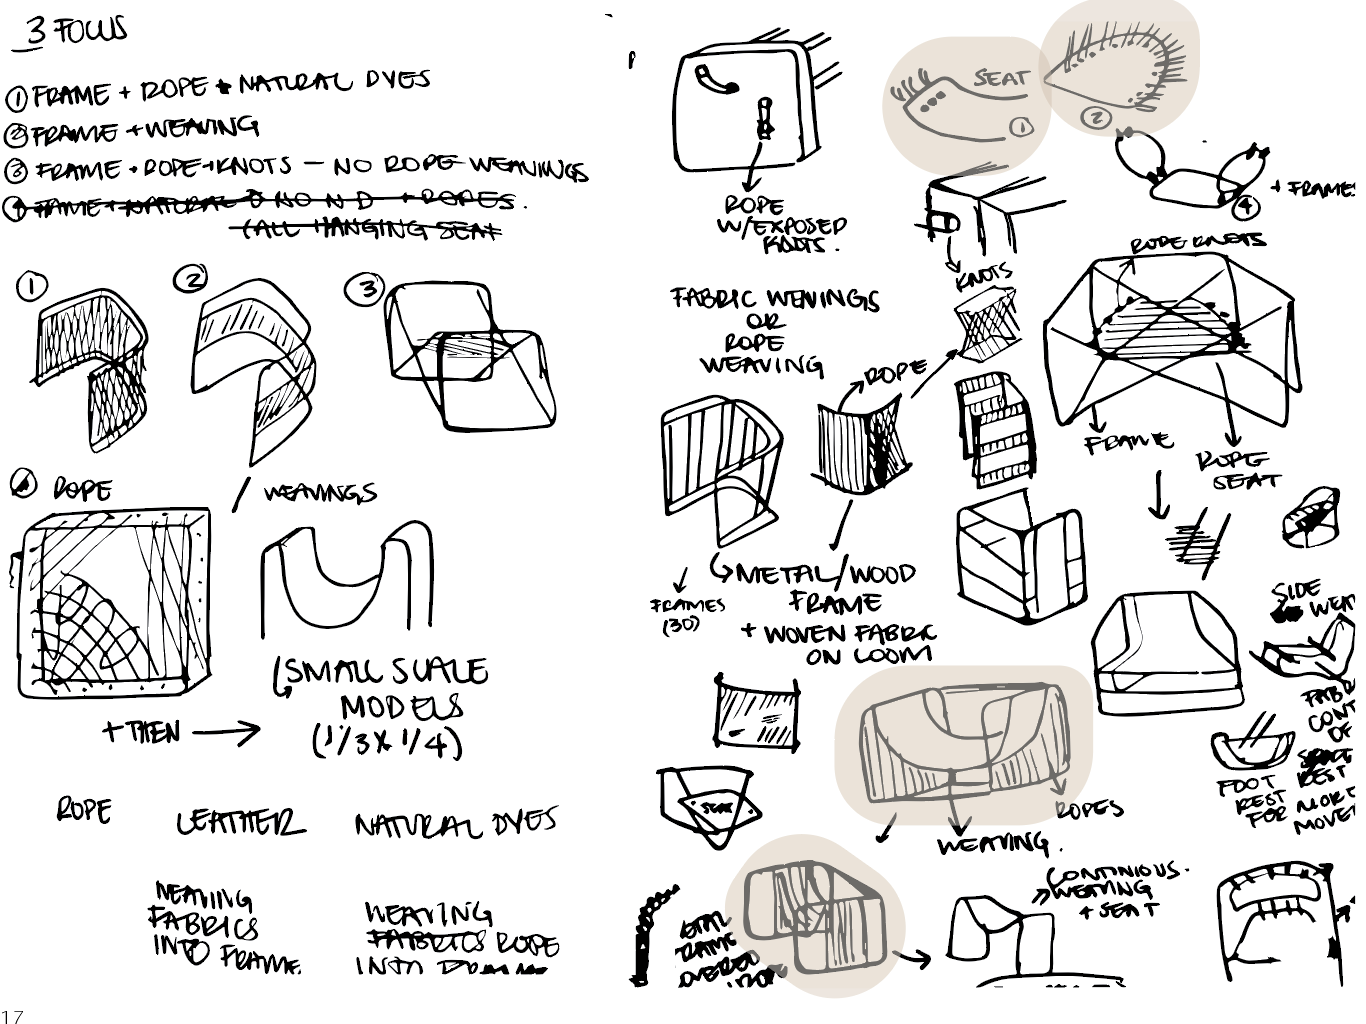 3 FOCUS
① FRAME + ROPE + NATURAL DYES
② FRAME + WEAVING
③ FRAME + ROPE + KNOTS – NO ROPE WEAVINGS
④ FRAME + NATURAL D NO N D + ROPES.
(ALL HANGING SEAT
① ② ③
ROPE
WEAVINGS
SMALL SCALE
MODELS
(1/3 x 1/4)
+ THEN
ROPE
LEATHER
NATURAL DYES
WEAVING
FABRICS
INTO FRAME
WEAVING
FABRICS ROPE
INTO
17
SEAT
①
②
④
+ FRAMES
ROPE
W/EXPOSED
KNOTS.
KNOTS
ROPE KNOTS
FABRIC WEAVINGS
OR
ROPE
WEAVING
ROPE
FRAME
ROPE
SEAT
FRAMES
(30)
METAL/WOOD
FRAME
+ WOVEN FABRIC
ON LOOM
SIDE
WEA
FABR
CONT
OF
REST
FOOT
REST
FOR MORE
MOVE
SEAT
ROPES
WEAVING.
CONTINIOUS.
WEAVING
+ SEAT
ETAL
FRAME
OVERED